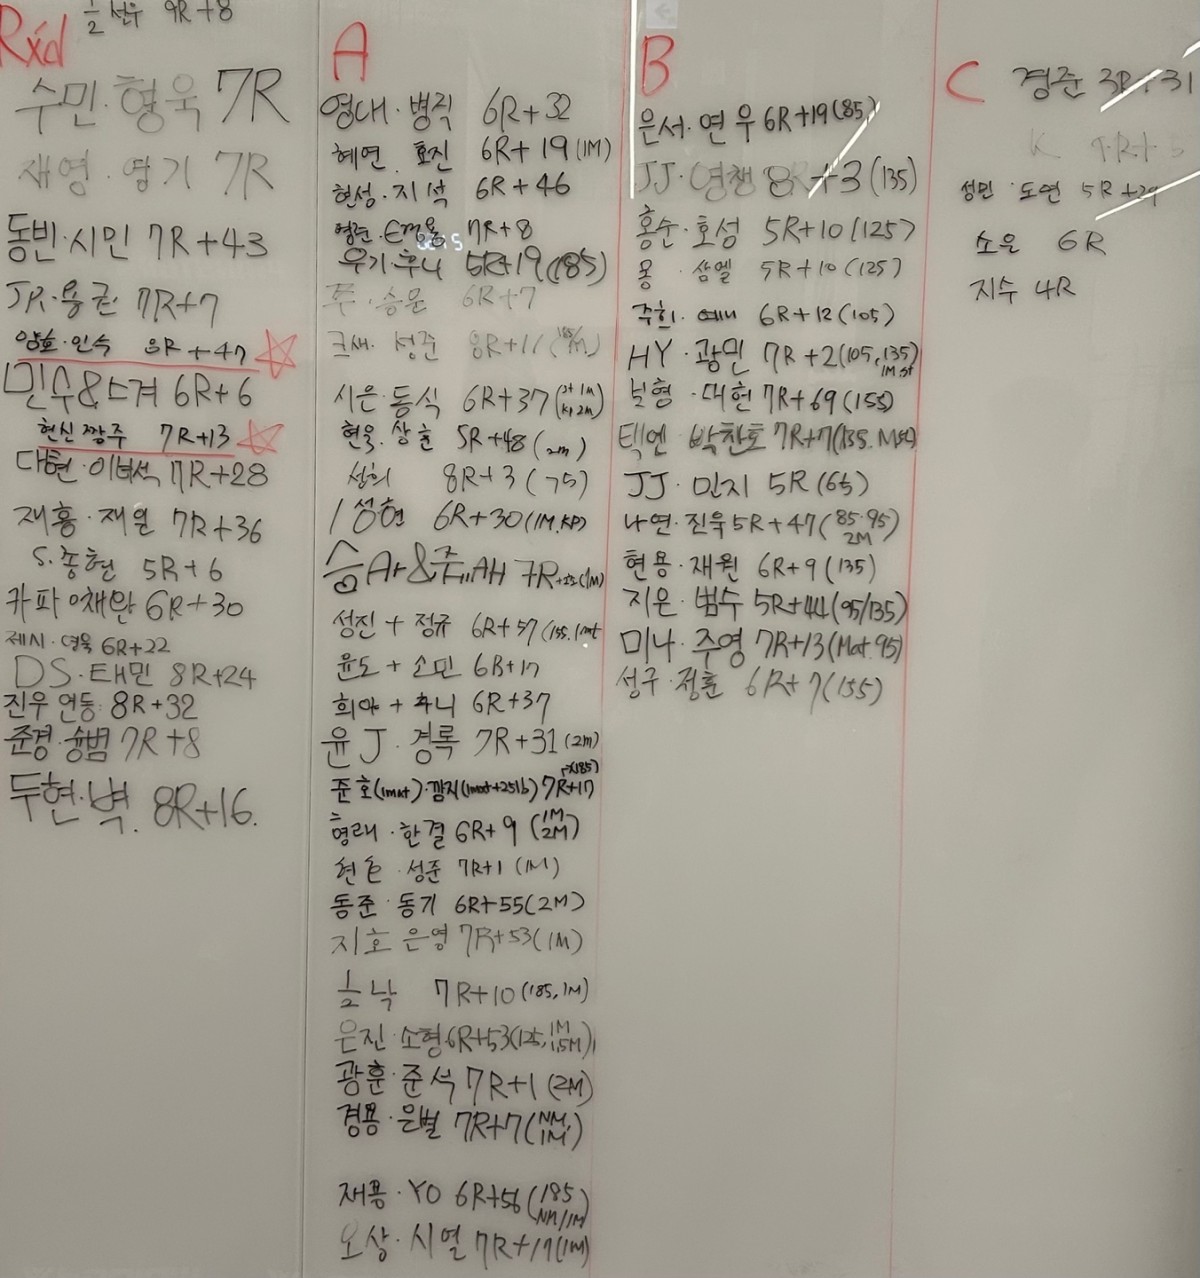 ½ 선우 9R+8
Rxd
수민·형욱 7R
재영·엽기 7R
동빈·시민 7R+43
JR·용권 7R+7
양호·인수 8R+47
민수&스겨 6R+6
현신 짱주 7R+13
대현·이녀석 7R+28
재홍·재원 7R+36
S.총현 5R+6
카파 6R+30
제시·영욱 6R+22
DS·태민 8R+24
진우 언동 8R+32
준경·슝범 7R+8
두현·벽. 8R+16.
A
영대·병직 6R+32
혜연·효진 6R+19(1M)
현성·지석 6R+46
7R+8
우기·후니 5R+19(185)
주·승윤 6R+7
크새·성준 8R+11
시은·동식 6R+37
현욱·상훈 5R+48(2m)
성희 8R+3(75)
성현 6R+30(1M.KP)
승Ar&주,,AH 7R+23(1M)
성진+정규 6R+57(155.1mat
윤도+소민 6R+17
희야+쿠니 6R+37
윤J·경록 7R+31(2m)
준호(1mat)·깜지(1mat+25lb) 7R+17
형래·한결 6R+9(1M 2M)
성준 7R+1(1M)
동준·동기 6R+55(2M)
지호 은영 7R+53(1M)
½ 낙 7R+10(185,1M)
은진·소형 6R+53(125,1M 1.5M)
광훈·준석 7R+1(2M)
경용·은별 7R+7(NM, 1M)
재용·YO 6R+56(185 NM/1M)
오상·시열 7R+17(1M)
B
은서·연우 6R+19(85)
JJ·영쟁 8R+3(135)
홍순·호성 5R+10(125)
몽·삼엘 5R+10(125)
주희·예니 6R+12(105)
HY·광민 7R+2(105,135 1M st
보형·대헌 7R+69(155)
텍엔·박찬호 7R+7(135.Mst)
JJ·민지 5R(65)
나연·진욱 5R+47(85·95 2M)
현용·재원 6R+9(135)
지은·범수 5R+44(95/135)
미나·주영 7R+13(Mat.95)
성구·정훈 6R+7(155)
C
경준 3R+31
K
성민·도연 5R+29
소은 6R
지수 4R